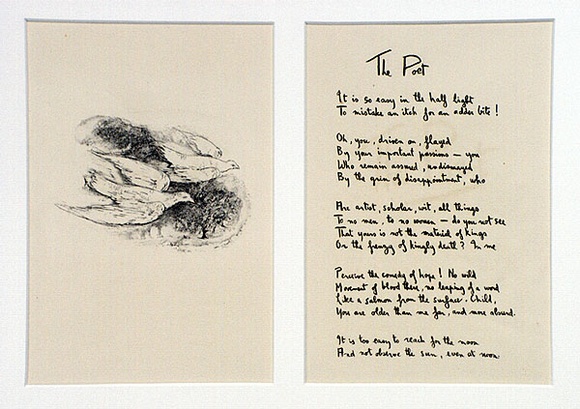 The Poet
It is so easy in the half light
To mistake an itch for an adder bite!
Oh, you, driven on, flayed
By your important passions — you
Who remain assured, undismayed
By the grin of disappointment, who
Are artist, scholar, wit, all things
To no men, to no women — do you not see
That yours is not the material of kings
Or the frenzy of kingly death? In me
Perceive the comedy of hope! No wild
Movement of blood there, no leaping of a word
Like a salmon from the surface. Child,
You are older than me far, and more absurd.
It is too easy to reach for the moon
And not observe the sun, even at noon